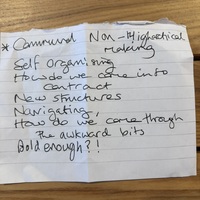 * Communal Non-Hierarchical
making
Self Organising
How do we come into
contract
New structures
Navigating,
How do we come through
the awkward bits
Bold enough?!